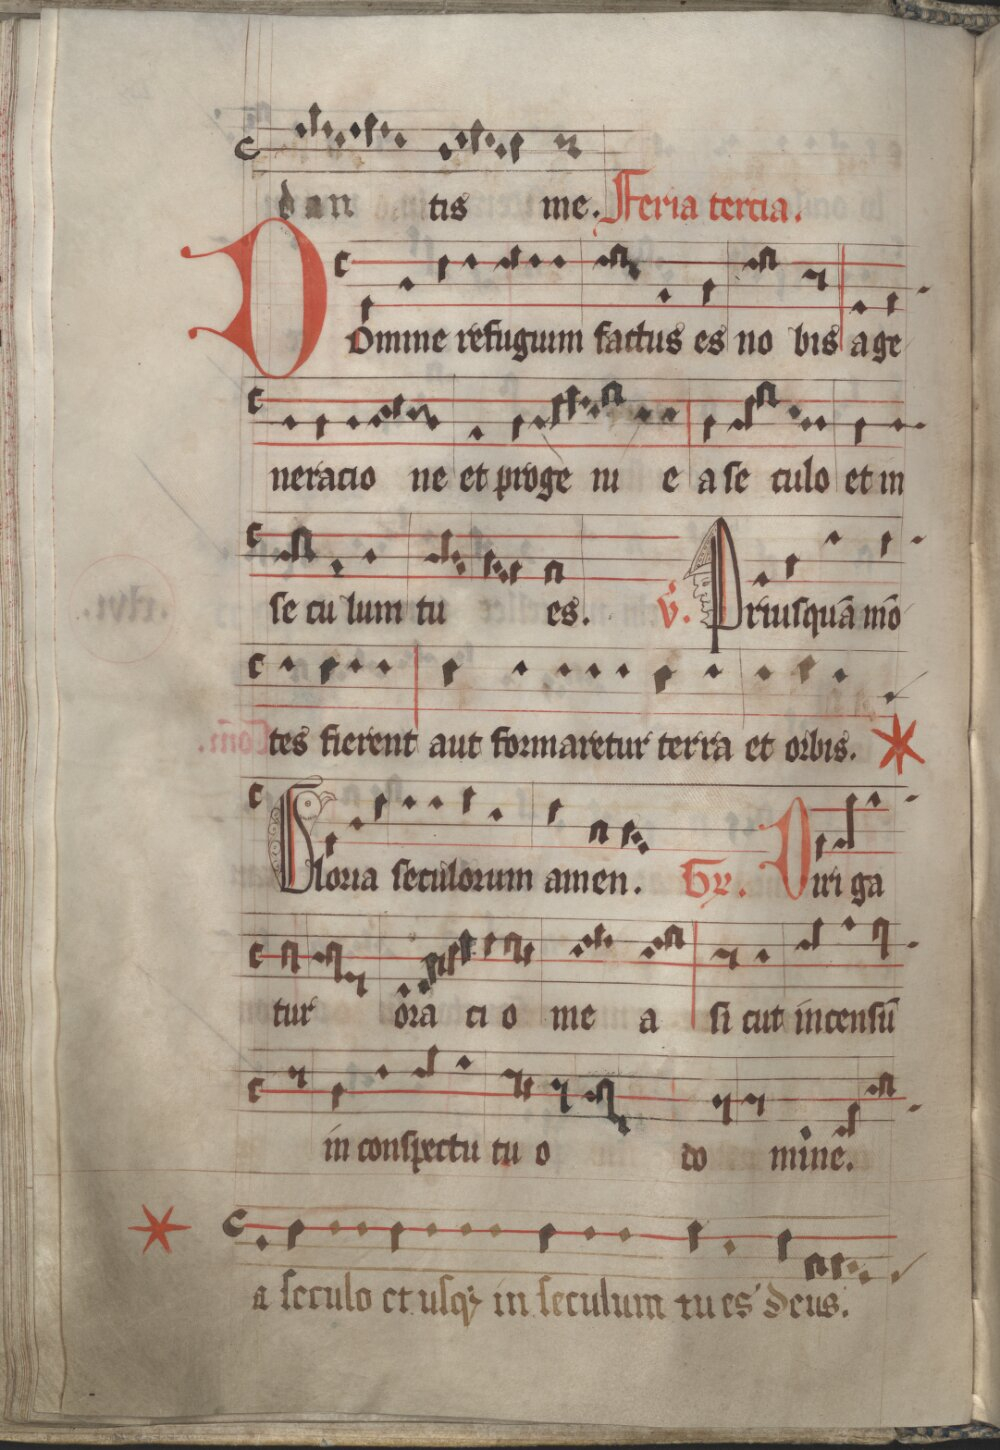 dan tis me. Feria tercia.
Domine refugium factus es no bis a ge
neracio ne et proge ni e a se culo et in
se cu lum tu es. V. Priusquā mō
tes fierent aut formaretur terra et orbis.
Gloria seculorum amen. Gr. Diri ga
tur ora ci o me a si cut incensū
in conspectu tu o do mine.
a seculo et usq; in seculum tu es deus.